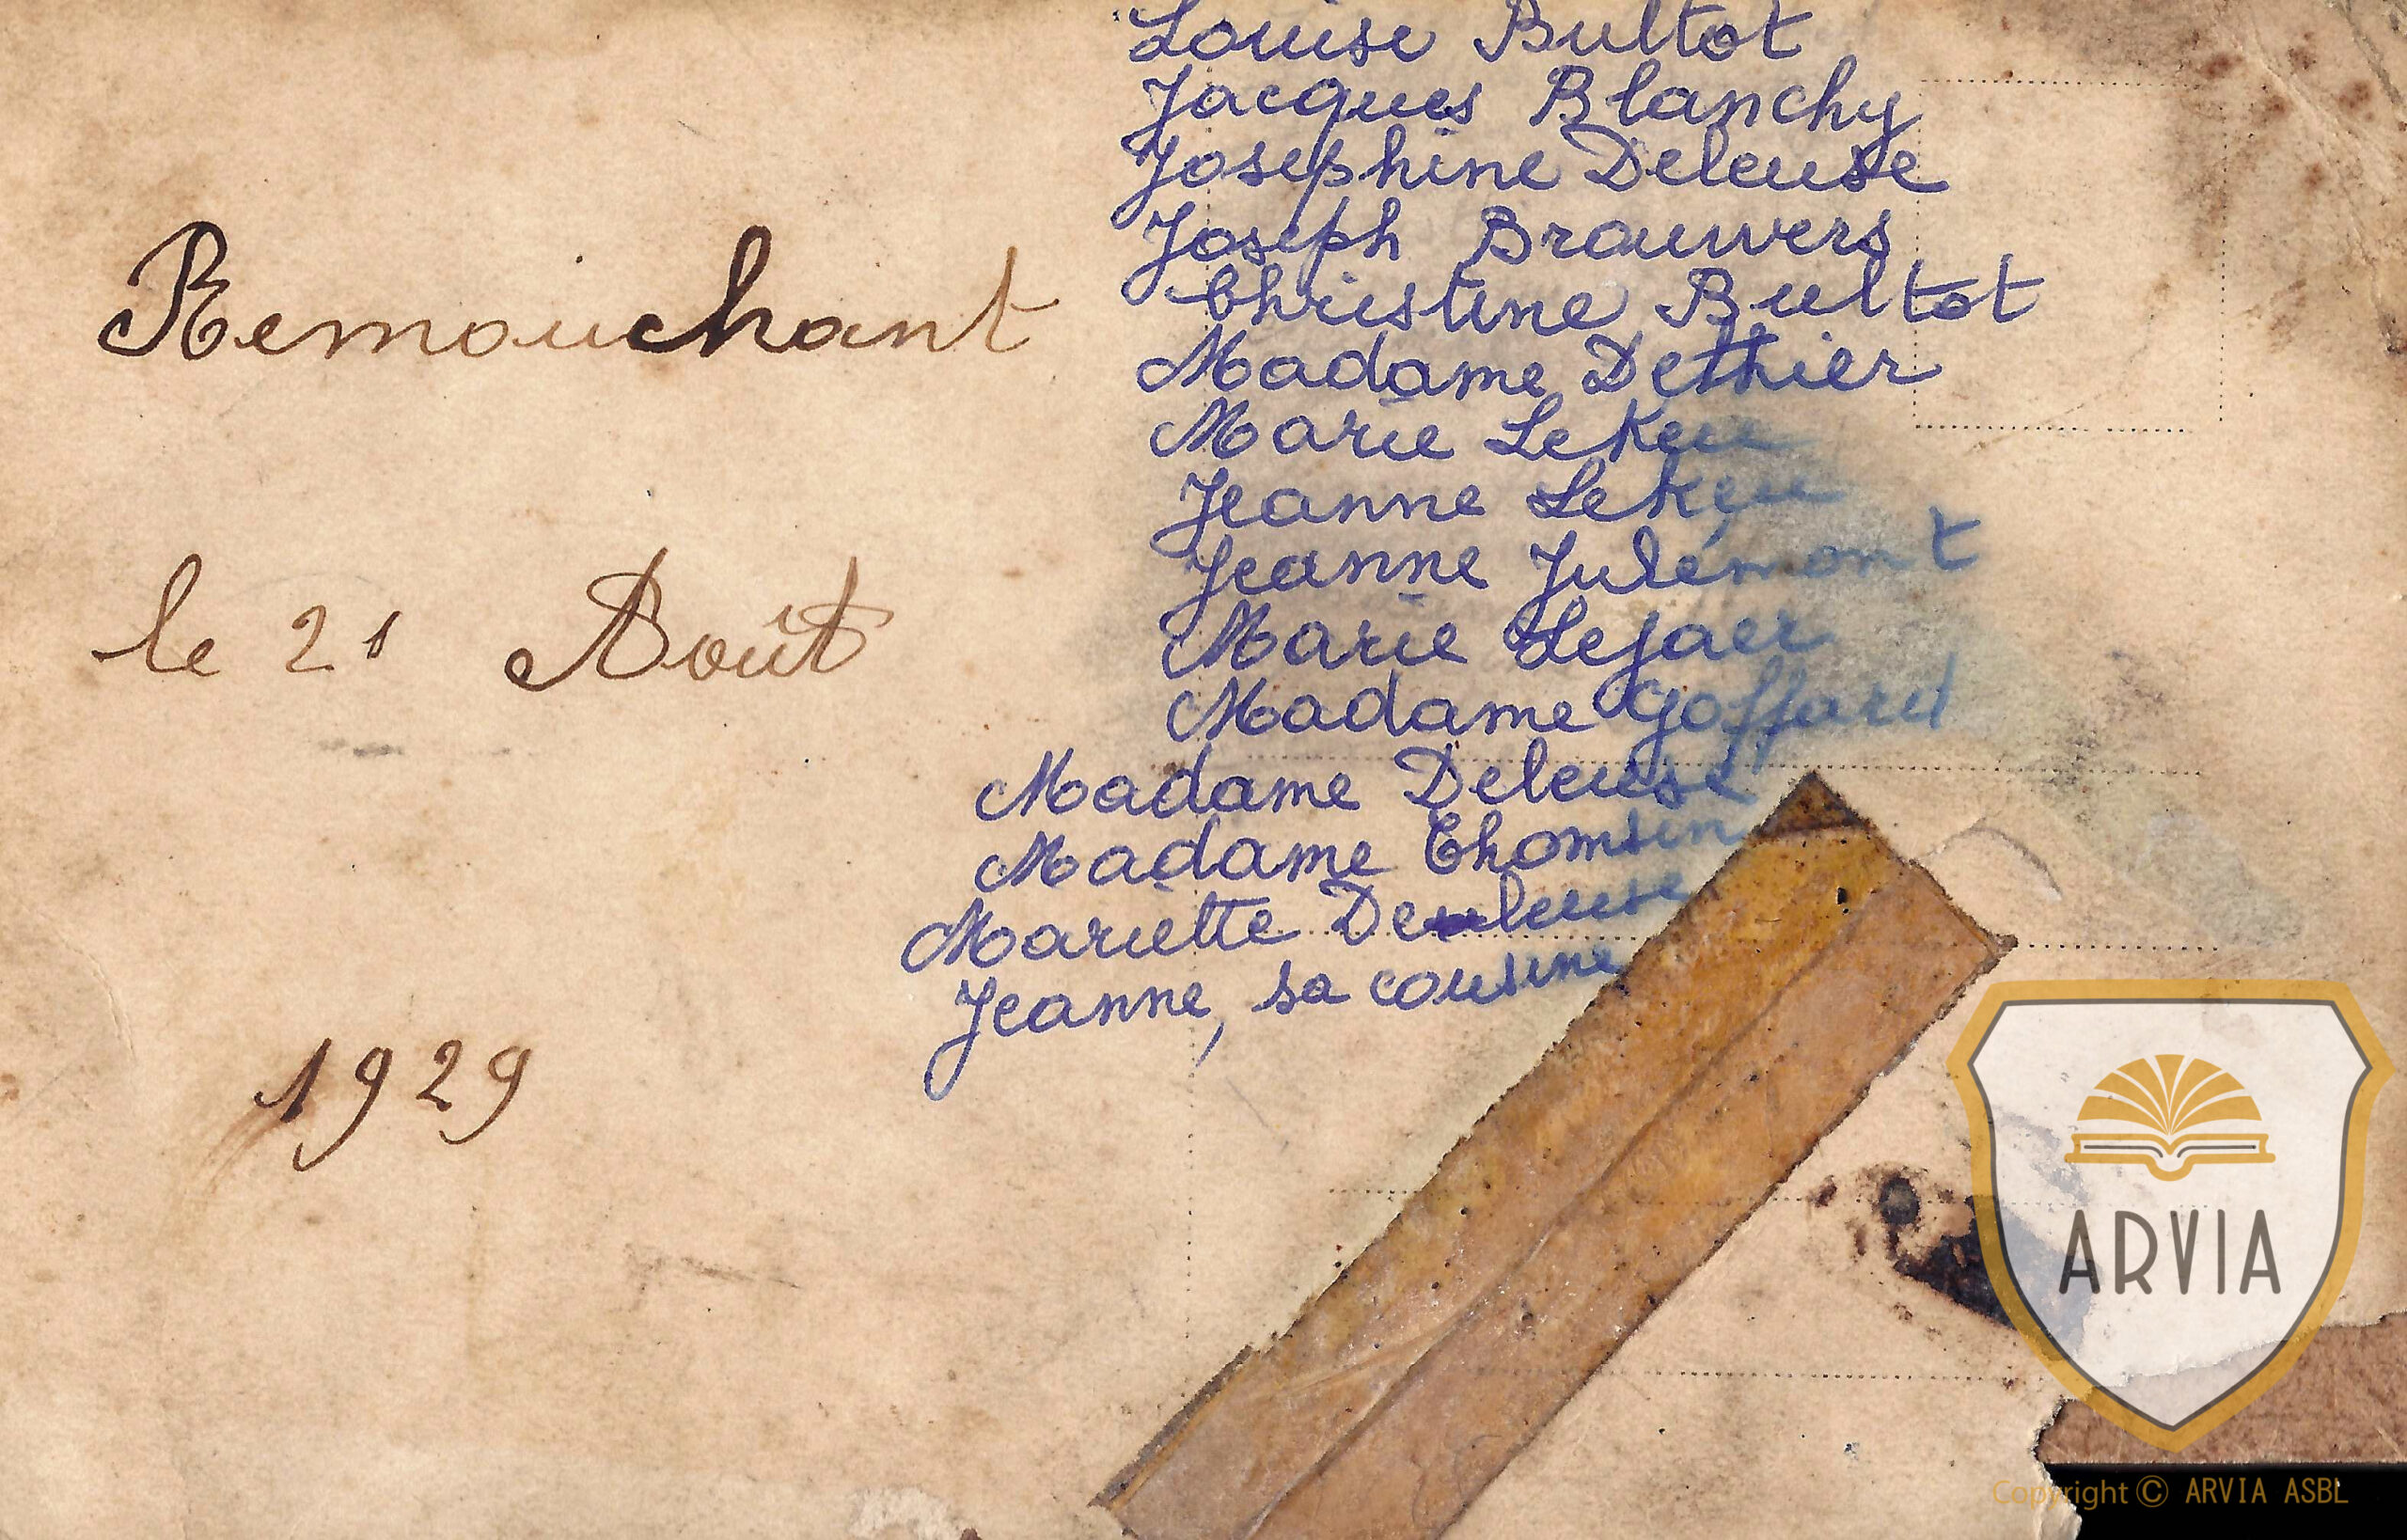 Remouchant
le 21 Août
1929
Louise Bultot
Jacques Blanchy
Josephine Deleuse
Joseph Brouwers
Christine Bultot
Madame Dethier
Marie Lekeu
Jeanne Lekeu
Jeanne Julémont
Marie Lejaer
Madame Goffard
Madame Deleuse
Madame Thomsin
Mariette Deleuse
Jeanne, sa cousine
ARVIA
Copyright © ARVIA ASBL